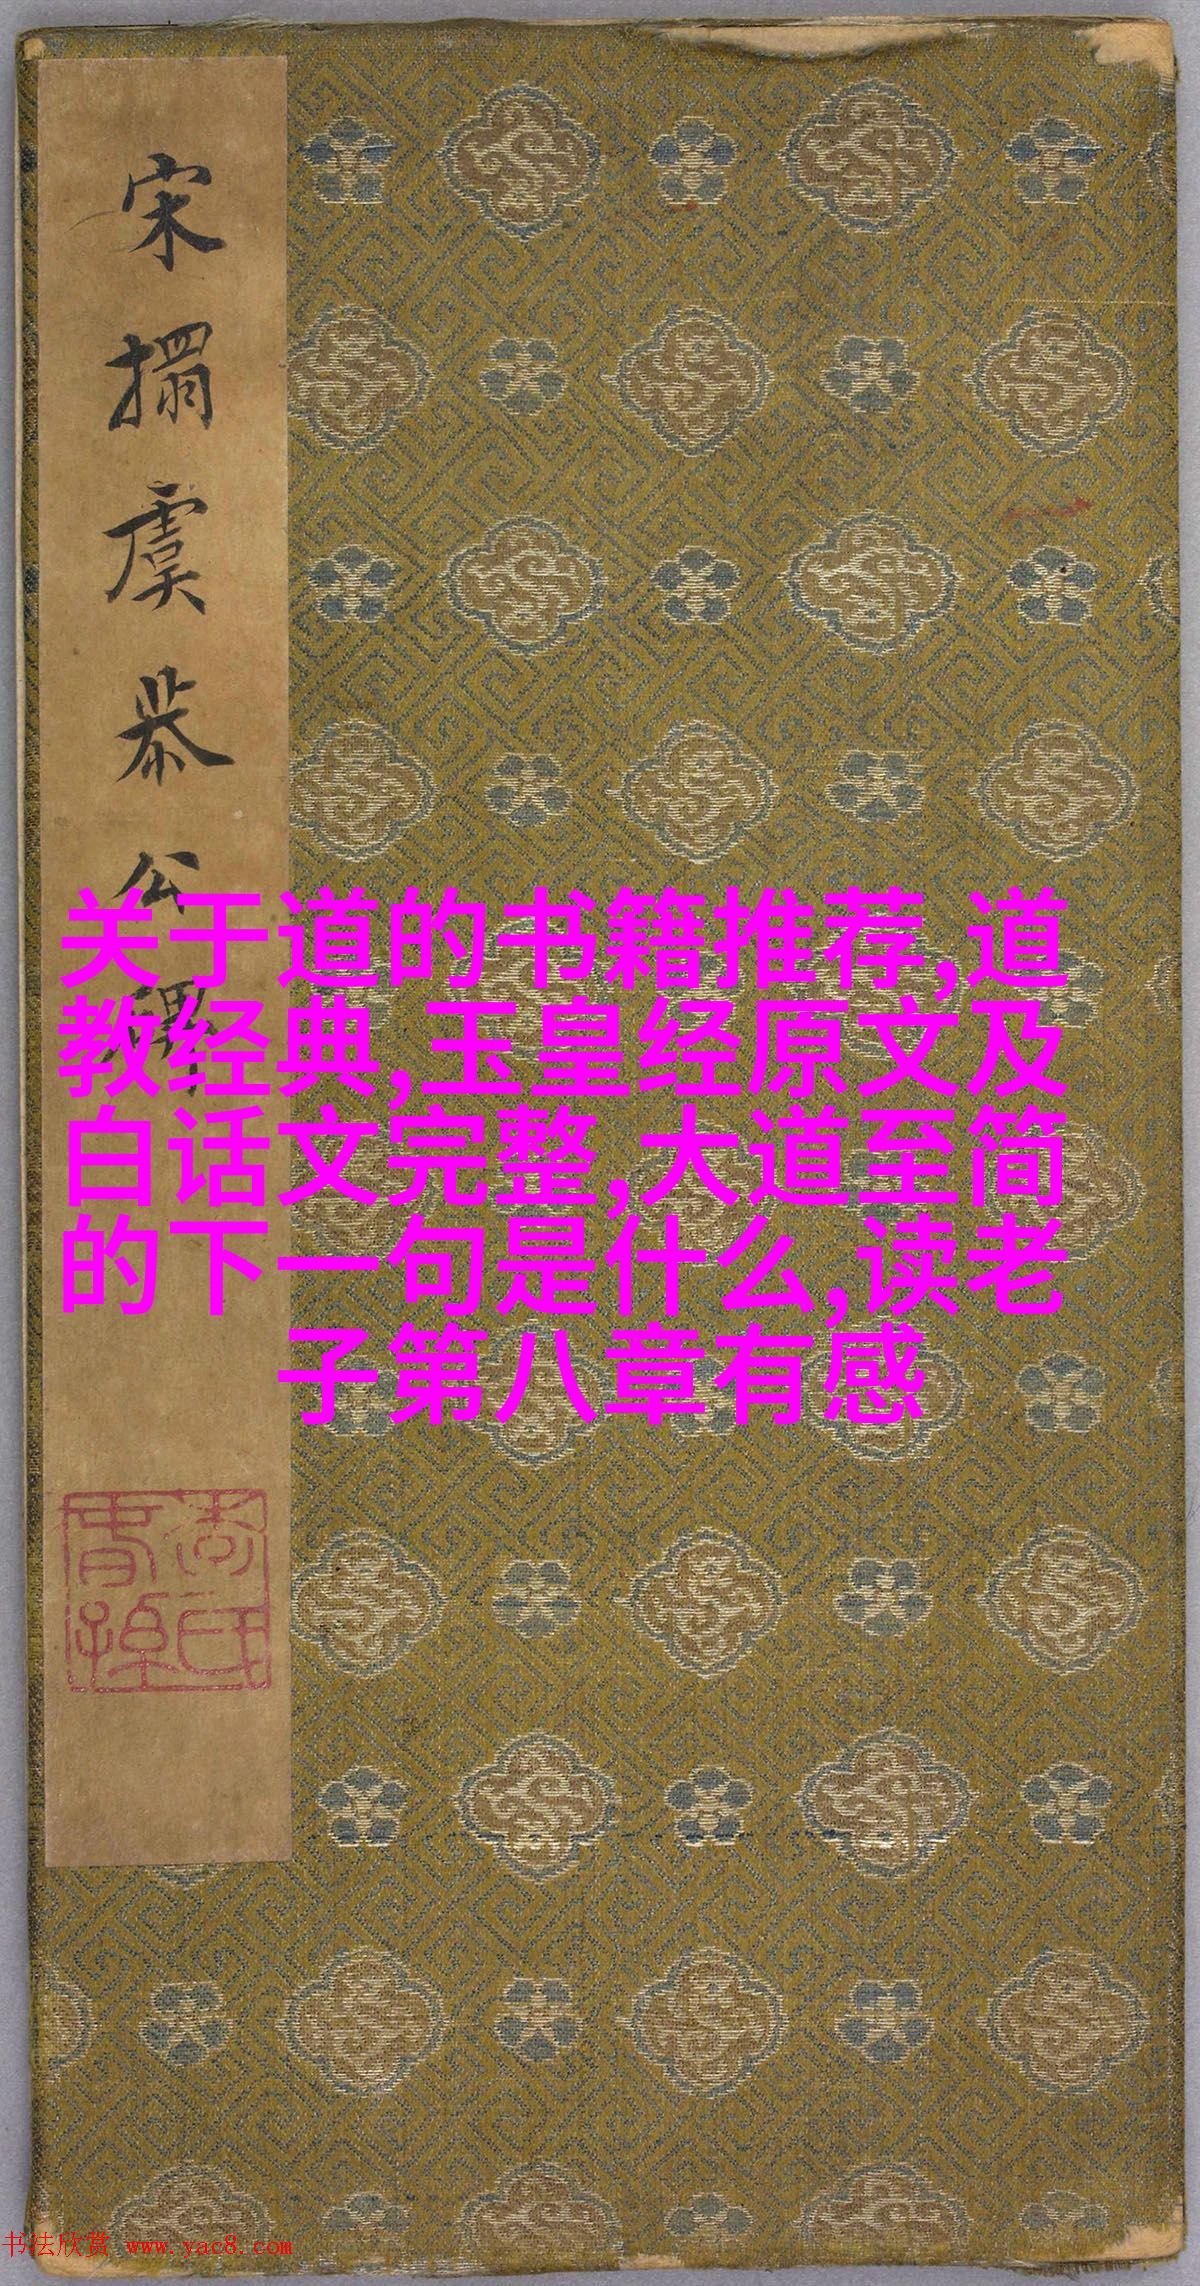 宋搨虞恭公碑
关于道的书籍推荐,道
教经典,玉皇经原文及
白话文完整,大道至简
的下一句是什么,读老
子第八章有感
书法欣赏 www.yac8.com